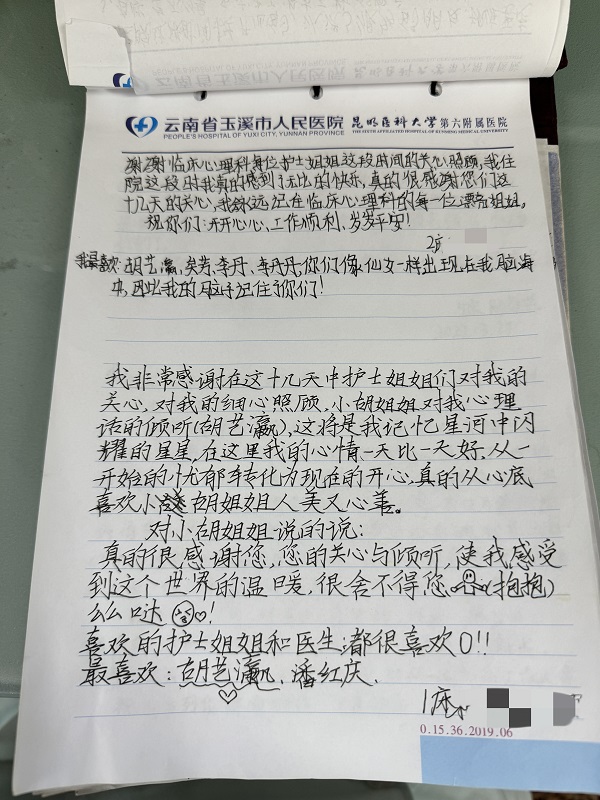 云南省玉溪市人民医院 昆明医科大学第六附属医院
PEOPLE'S HOSPITAL OF YUXI CITY, YUNNAN PROVINCE THE SIXTH AFFILIATED HOSPITAL OF KUNMING MEDICAL UNIVERSITY
谢谢临床心理科每位护士姐姐这段时间的关心照顾,我住
院这段时我真的感到了无比的快乐,真的很感谢您们这
十几天的关心,我永远记在临床心理科的每一位漂亮姐姐。
祝你们:开开心心,工作顺利,岁岁平安!
2床
我最喜欢:胡艺瀛,矣芳,李丹,李丹丹,你们像仙女一样出现在我脑海
中,因此我的脑子记住了你们!
我非常感谢在这十几天中护士姐姐们对我的
关心,对我的细心照顾,小胡姐姐对我心理
话的倾听(胡艺瀛),这将是我记忆星河中闪
耀的星星,在这里我的心情一天比一天好,从一
开始的忧郁转化为现在的开心,真的从心底
喜欢小胡姐姐人美又心善。
对小胡姐姐说的说:
真的很感谢您,您的关心与倾听,使我感受
到这个世界的温暖,很舍不得您(抱抱)
么么哒!
喜欢的护士姐姐和医生:都很喜欢O!!
最喜欢:胡艺瀛、潘红庆.
1床
0.15.36.2019.06